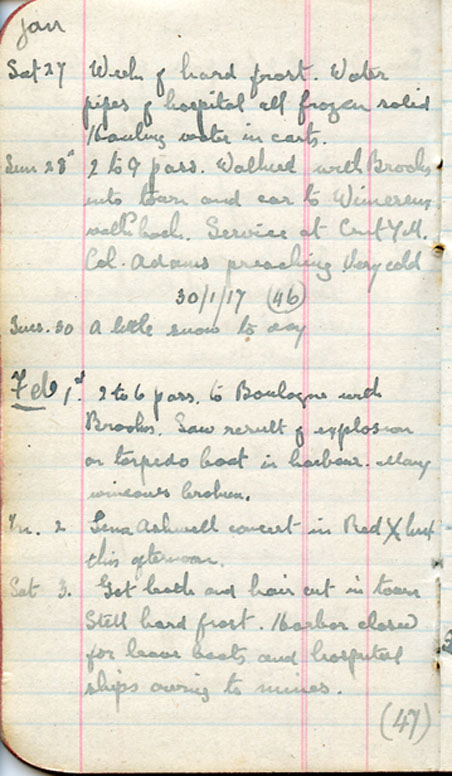 Jan
Sat 27 Week of hard frost. Water
pipes of hospital all frozen solid
Hauling water in carts.
Sun 28th 2 to 9 pass. Walked with Brooks
into town and car to Wimereux
walk back. Service at Cent Y.M.
Col. Adams preaching Very cold
30/1/17 (46)
Tues. 30 A little snow to day
Feb 1st. 2 to 6 pass. to Boulogne with
Brooks. Saw result of explosion
on torpedo boat in harbour. Many
windows broken.
Fri. 2 Lena Ashwell concert in Red X hut
this afternoon.
Sat 3. Got bath and hair cut in town
Still hard frost. Harbor closed
for leave boats and hospital
ships owing to mines.
(47)